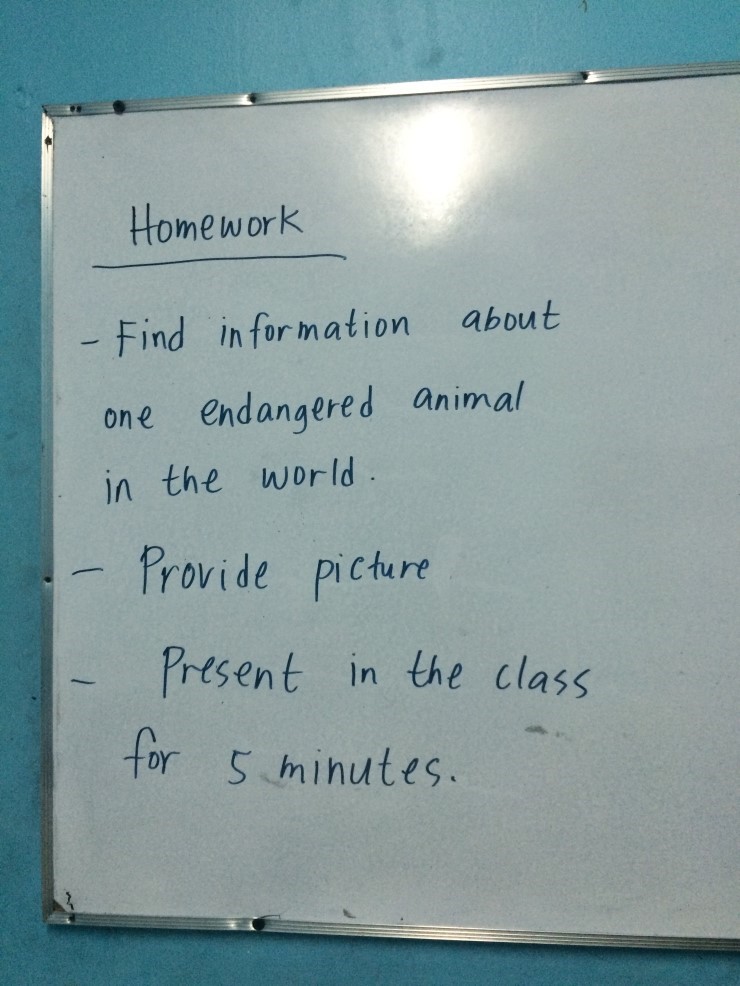 Homework
- Find information about
one endangered animal
in the world.
- Provide picture
- Present in the class
for 5 minutes.